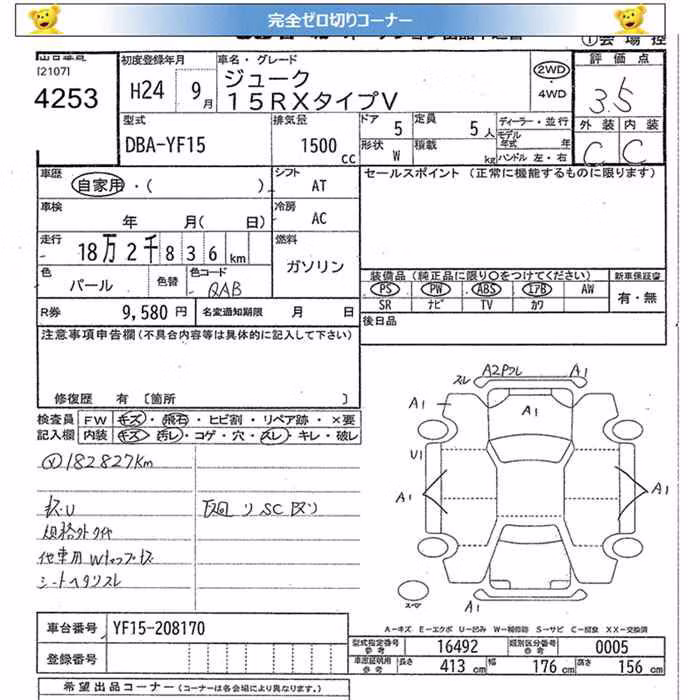 完全ゼロ切りコーナー
[2107]
4253
初度登録年月
H24 9月
車名・グレード
ジューク
15RXタイプV
2WD
・
4WD
評価点
3.5
外装 内装
C C
型式
DBA-YF15
排気量
1500 cc
ドア 5
定員 5人
形状 W
積載 kg
ディーラー・並行
モデル年式 年
ハンドル 左・右
車歴
自家用・( )
シフト AT
車検
年 月( 日)
冷房 AC
走行
18万2千836km
燃料
ガソリン
色
パール
色替
色コード
QAB
R券 9,580円
名変通知期限 月 日
セールスポイント (正常に機能するものに限ります)
装備品(純正品に限り○をつけてください)
新車保証書
PS PW ABS エアB AW
SR ナビ TV カワ
有・無
後日品
注意事項申告欄(不具合内容等は具体的に記入して下さい)
修復歴 有 〔箇所 〕
検査員
記入欄
FW キズ・飛石・ヒビ割・リペア跡・×要
内装 キズ・汚レ・コゲ・穴・スレ・キレ・破レ
182827km
規格外タイヤ
他車用Wトップキズ
シートヘタリスレ
スレ A2 A1
A1 A1 A1
U1
A1 A1
A1
A-キズ E-エクボ U-凹み W-補修跡 S-サビ C-腐食 XX-交換済
車台番号 YF15-208170
登録番号
型式指定番号 参考 16492
類別区分番号 参考 0005
車庫証明用 参考 長さ 413 cm 幅 176 cm 高さ 156 cm
希望出品コーナー(コーナーは各会場により異なります。)